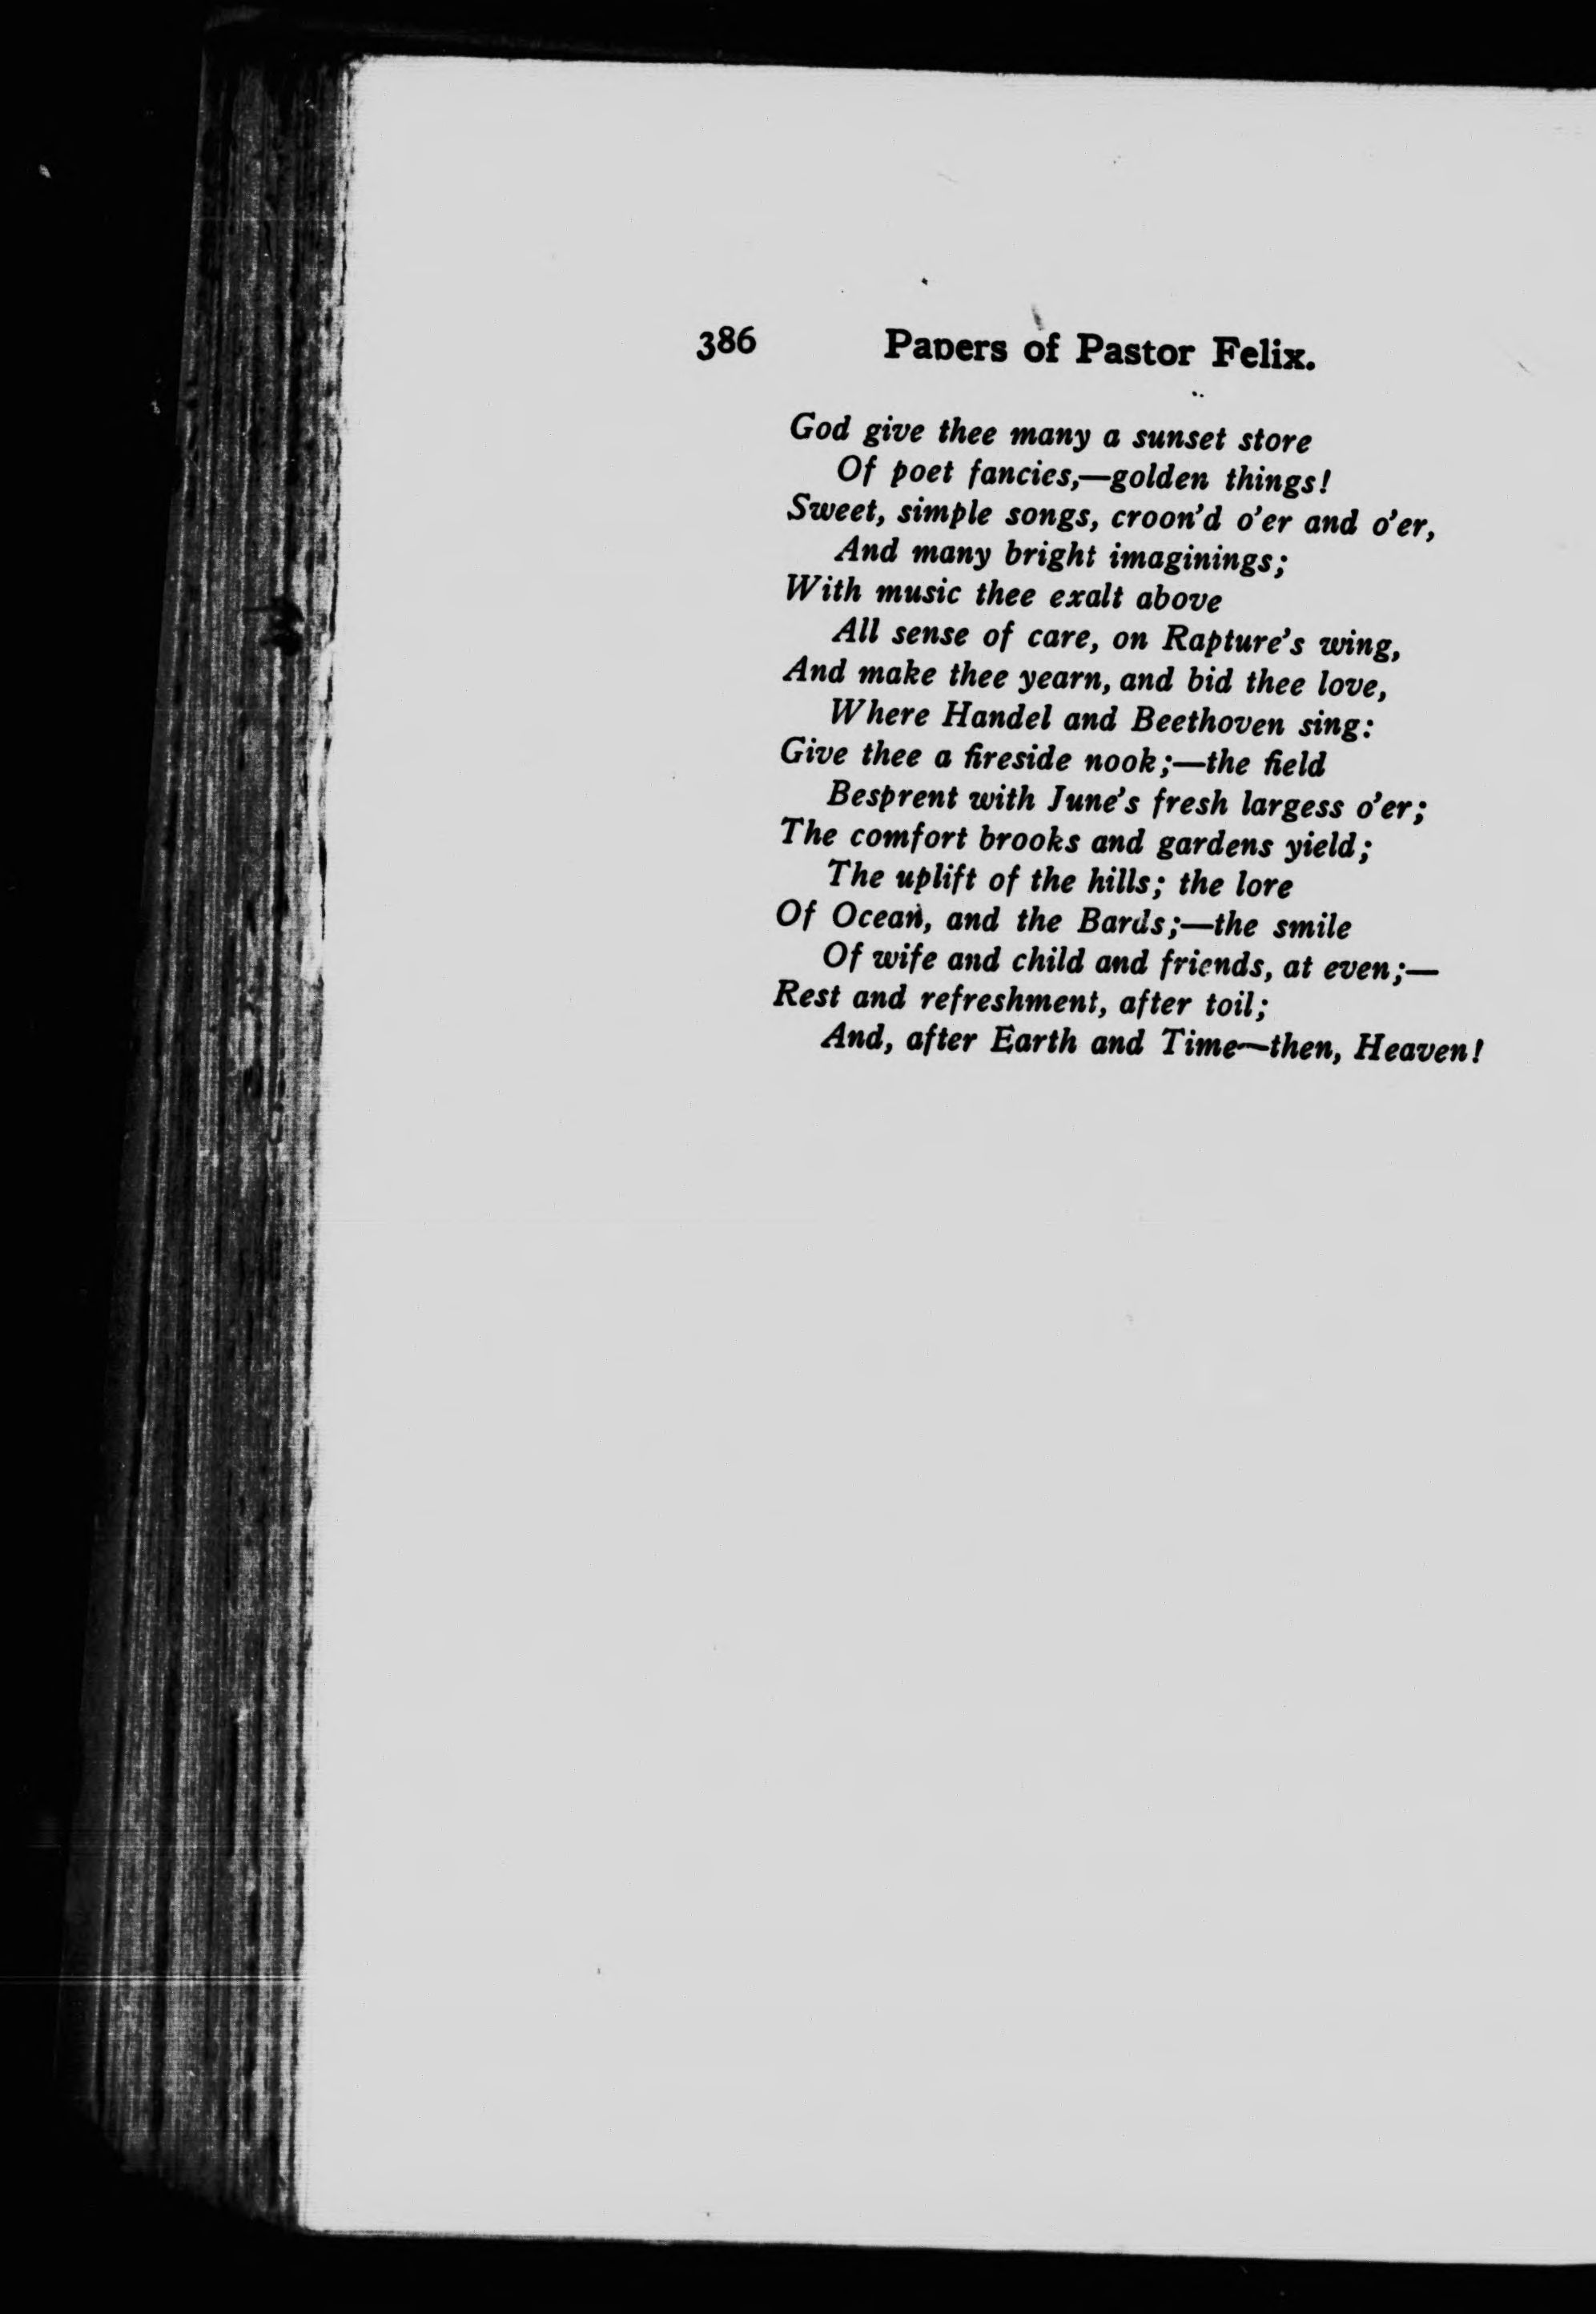 386 Papers of Pastor Felix.
God give thee many a sunset store
Of poet fancies,—golden things!
Sweet, simple songs, croon'd o'er and o'er,
And many bright imaginings;
With music thee exalt above
All sense of care, on Rapture's wing,
And make thee yearn, and bid thee love,
Where Handel and Beethoven sing:
Give thee a fireside nook;—the field
Besprent with June's fresh largess o'er;
The comfort brooks and gardens yield;
The uplift of the hills; the lore
Of Ocean, and the Bards;—the smile
Of wife and child and friends, at even;—
Rest and refreshment, after toil;
And, after Earth and Time—then, Heaven!